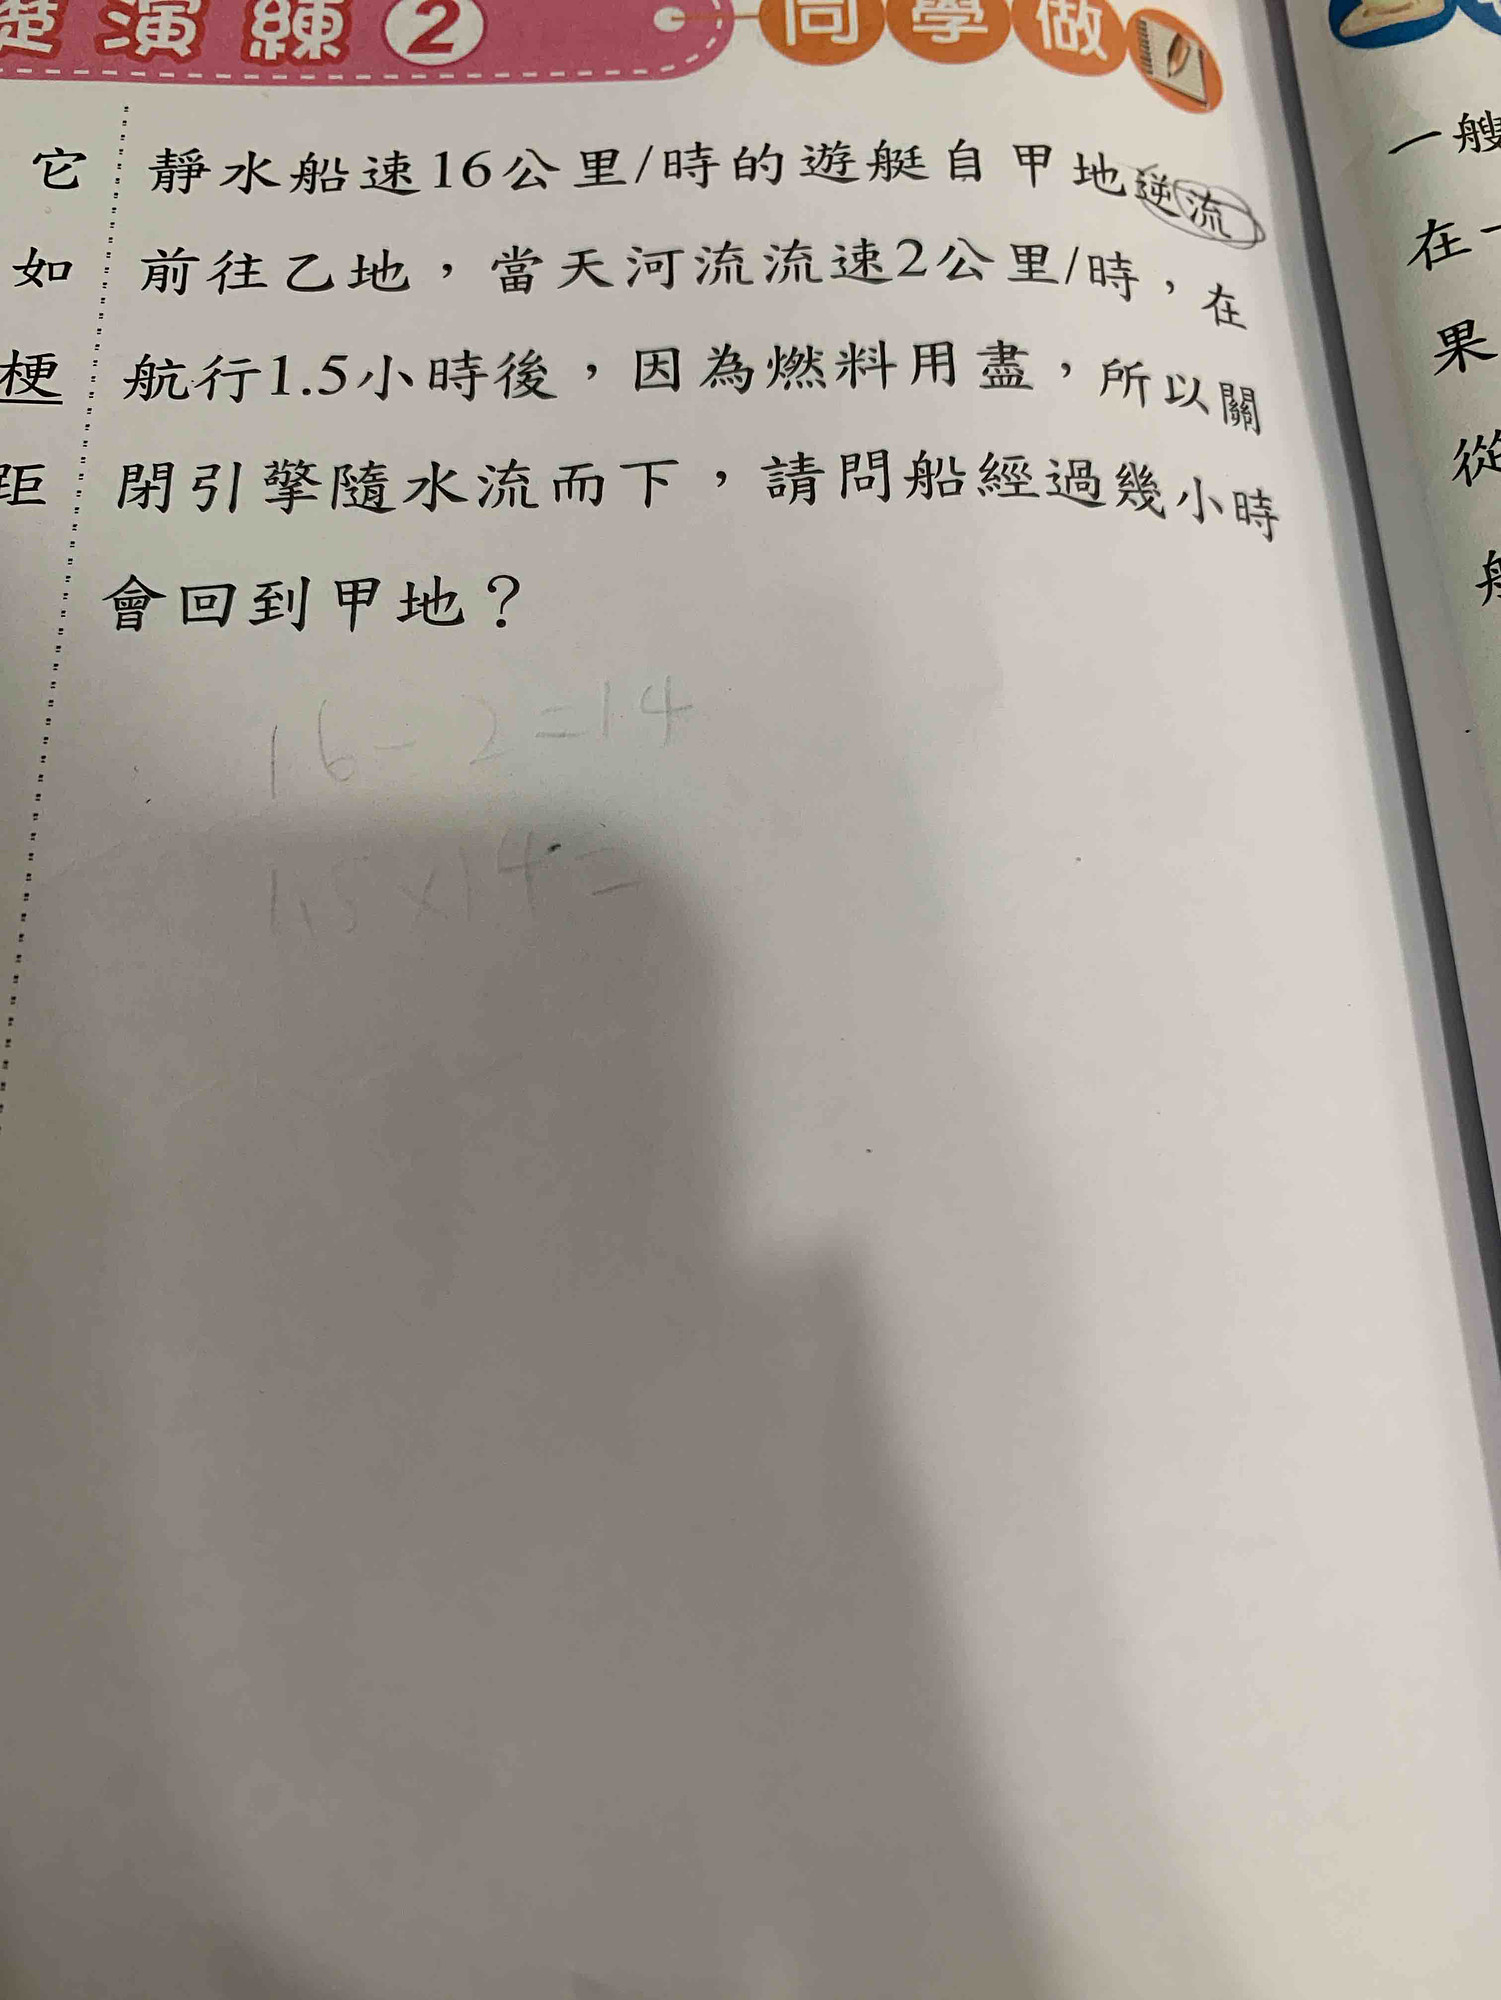 演練2 同學做
它
如
梗
距
靜水船速16公里/時的遊艇自甲地逆流
前往乙地，當天河流流速2公里/時，在
航行1.5小時後，因為燃料用盡，所以關
閉引擎隨水流而下，請問船經過幾小時
會回到甲地？
16-2=14
1.5×14=
一艘
在一
果
從